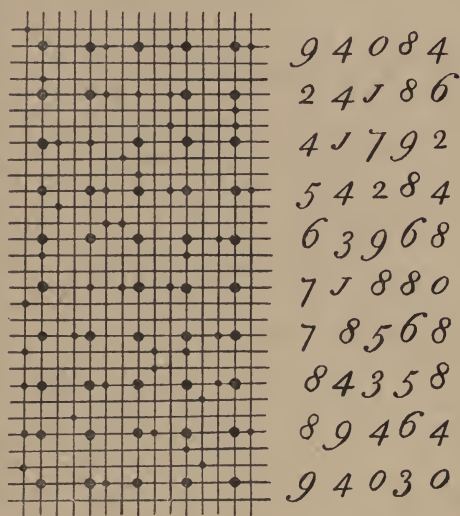 9 4 0 8 4
2 4 1 8 6
4 1 7 9 2
5 4 2 8 4
6 3 9 6 8
7 1 8 8 0
7 8 5 6 8
8 4 3 5 8
8 9 4 6 4
9 4 0 3 0